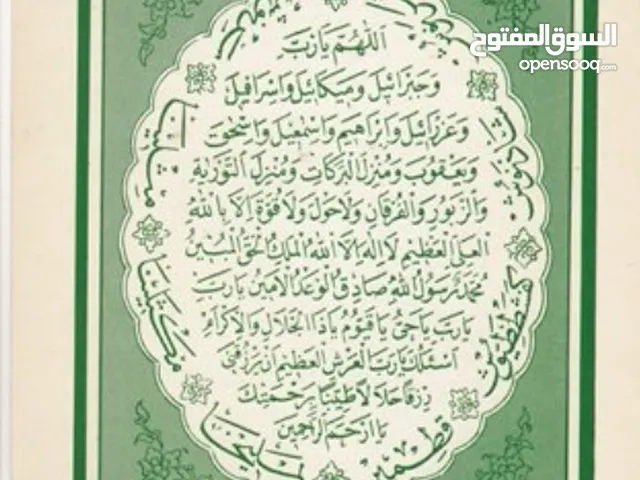 السوق المفتوح
opensooq.com
اللهم يا رب
وجبرائيل وميكائيل واسرافيل
وعزرائيل وابراهيم واسمعيل واسحق
ويعقوب ومنزل البركات ومنزل التورية
والزبور والفرقان ولا حول ولا قوة الا بالله
العلى العظيم لا اله الا الله الملك الحق المبين
محمد رسول الله صادق الوعد الامين يا رب
يا رب يا حى يا قيوم يا ذا الجلال والاكرام
اسئلك يا رب العرش العظيم ان ترزقنى
رزقا حلالا طيبا برحمتك
يا ارحم الراحمين
شاذنوش
كفشططيوش
قطمير
يمليخا
مكثلينا
مثلينا